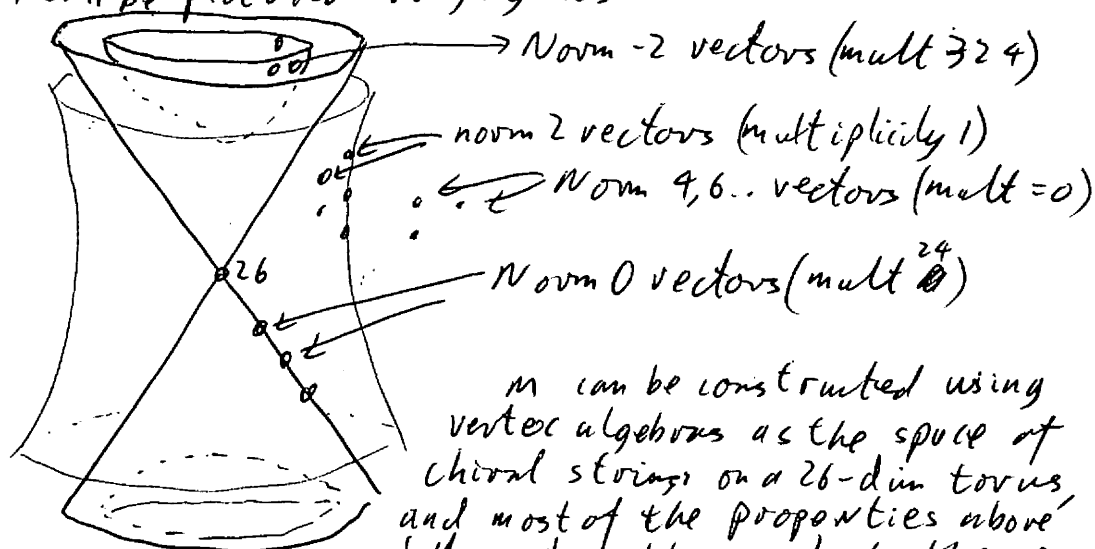 can be pictured
Norm -2 vectors (mult 324)
norm 2 vectors (multiplicity 1)
Norm 4,6.. vectors (mult = 0)
26
Norm 0 vectors (mult 24)
M can be constructed using
vertex algebras as the space of
chiral strings on a 26-dim torus,
and most of the properties above